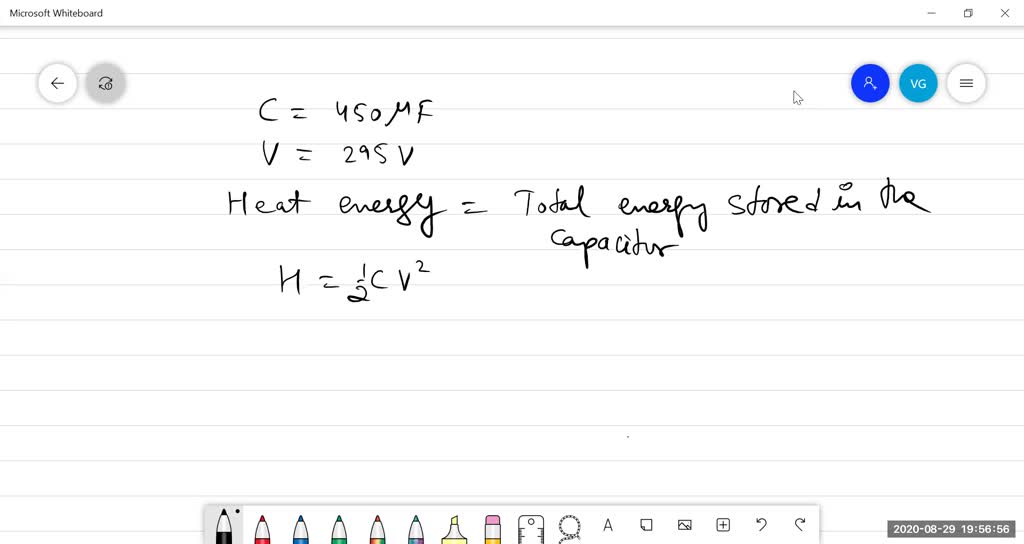 Microsoft Whiteboard
VG
C = 450 μF
V = 295 V
Heat energy = Total energy stored in the
capacitor
H = ½ C V²
A
2020-08-29 19:56:56